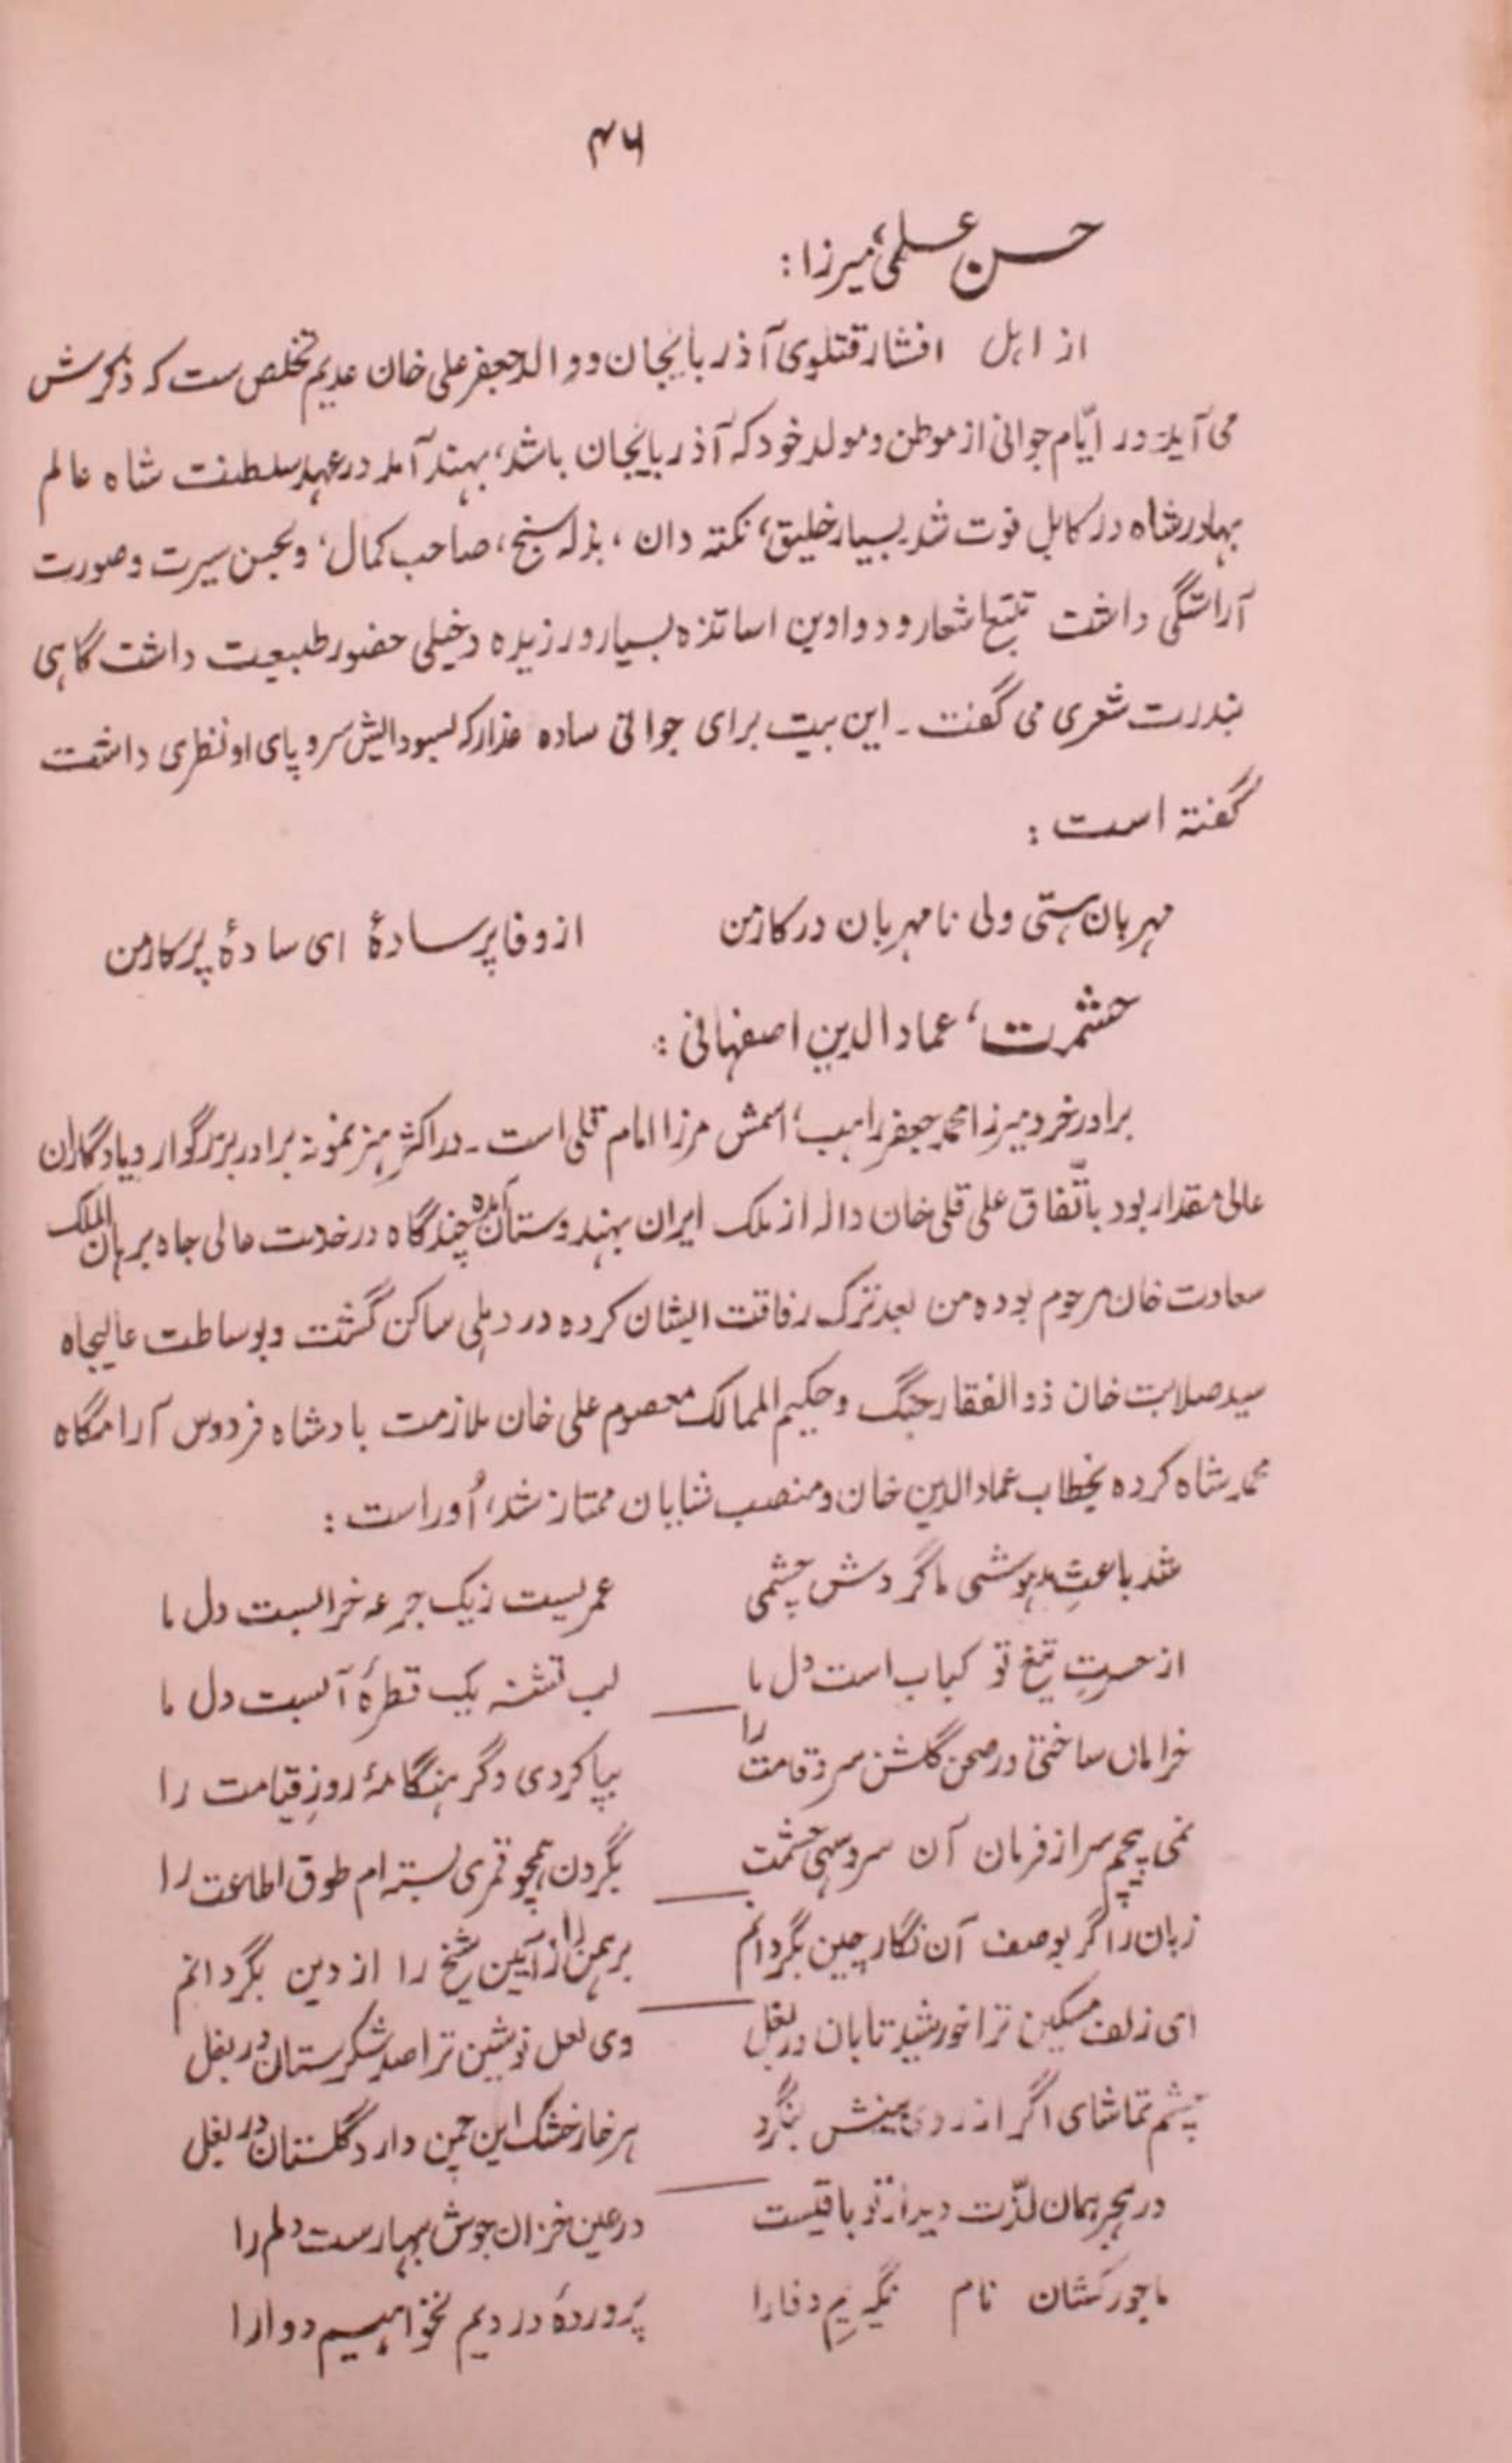 ۴۶
حسن علی، میرزا :
از اہل افشار قتلوی آذربایجان و والد جعفر علی خان عدیم تخلص ست کہ ذکرش
می آید۔ در ایّام جوانی از موطن و مولد خود کہ آذربایجان باشد، بہند آمد در عہد سلطنت شاہ عالم
بہادر شاہ در کابل فوت شد۔ بسیار خلیق، نکتہ دان، بذلہ سنج، صاحب کمال، و بحسن سیرت و صورت
آراستگی داشت تتبّع اشعار و دواوین اساتذہ بسیار ورزیدہ و خیلی حضور طبیعت داشت گاہی
بندرت شعری می گفت۔ این بیت برای جوانی سادہ عذار کہ بسودایش سر و پای او نظری داشت
گفتہ است :
مہربان ہستی ولی نامہربان در کار من از وفا پر سادۂ ای سادۂ پرکار من
حشمت، عماد الدین اصفہانی :
برادر خرد میرزا محمد جعفر راہب، اسمش مرزا امام قلی است۔ در اکثر ہنر نمونہ برادر بزرگوار و یادگاران
عالی مقدار بود باتّفاق علی قلی خان والہ از ملک ایران بہندوستان آمدہ چندگاہ در خدمت عالی جاہ برہان الملک
سعادت خان مرحوم بودہ من بعد ترک رفاقت ایشان کردہ در دہلی ساکن گشت و بوساطت عالیجاہ
سید صلابت خان ذوالفقار جنگ و حکیم الممالک معصوم علی خان ملازمت بادشاہ فردوس آرامگاہ
محمد شاہ کردہ بخطاب عماد الدین خان و منصب شایان ممتاز شد، اُو راست :
شد باعثِ بیہوشی ما گردش چشمی عمریست زیک جرعہ خرابست دل ما
از حسرتِ تیغ تو کباب است دل ما لب تشنہ یک قطرۂ آبست دل ما
خراماں ساختی در صحن گلشن سرو قامت را بپا کردی دگر ہنگامۂ روزِ قیامت را
نمی پیچم سر از فرمان آن سرو سہی حشمت بگردن ہمچو قمری بستہ ام طوق اطاعت را
زبان را گر بوصف آن نگار چین بگردانم برہمن را از آیین شیخ را از دین بگردانم
ای زلف مسکین ترا خورشید تابان در بغل وی لعل نوشین ترا صد شکرستان در بغل
چشم تماشای اگر از روی بینش بنگرد ہر خار خشک این چمن دارد گلستان در بغل
در ہجر ہمان لذّت دیدار تو باقیست در عین خزان جوش بہارست دلم را
ما جورکشان نام نگیریم وفا را پروردۂ دردیم نخواہیم دوا را